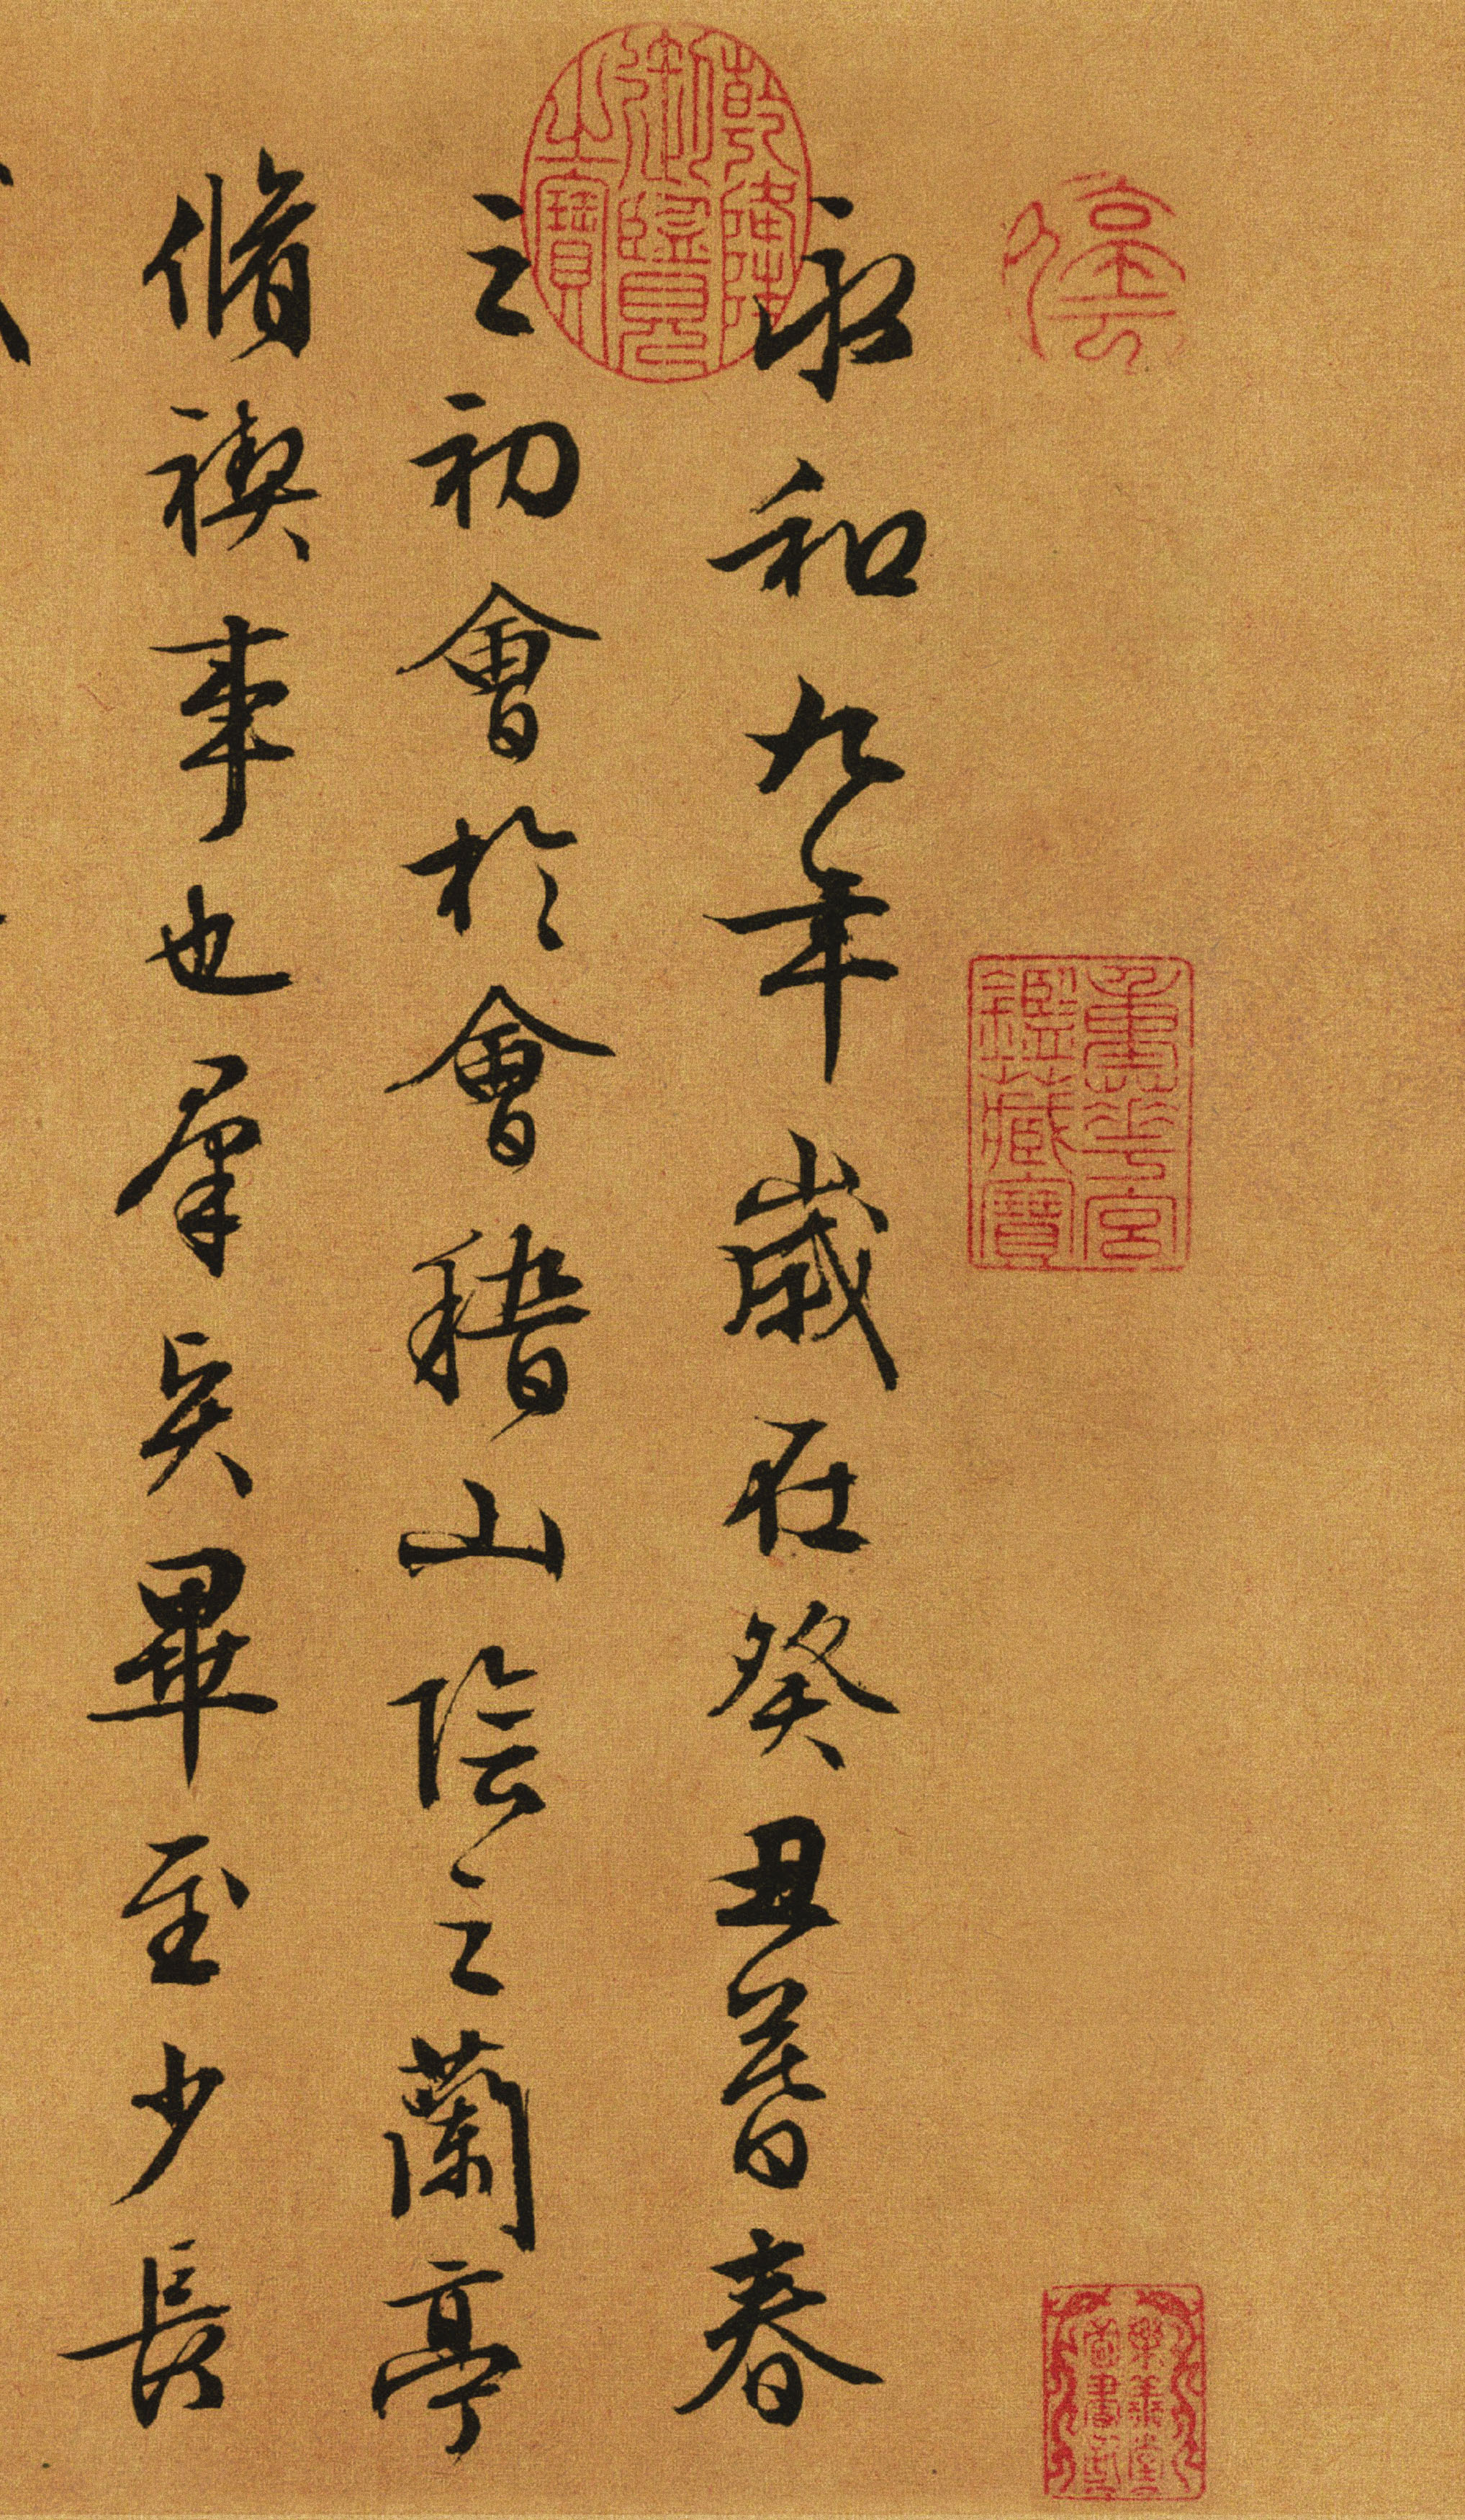 重華宮鑑藏寶
樂善堂圖書記
永和九年歲在癸丑暮春
乾隆御覽之寶
之初會於會稽山陰之蘭亭
脩禊事也羣賢畢至少長